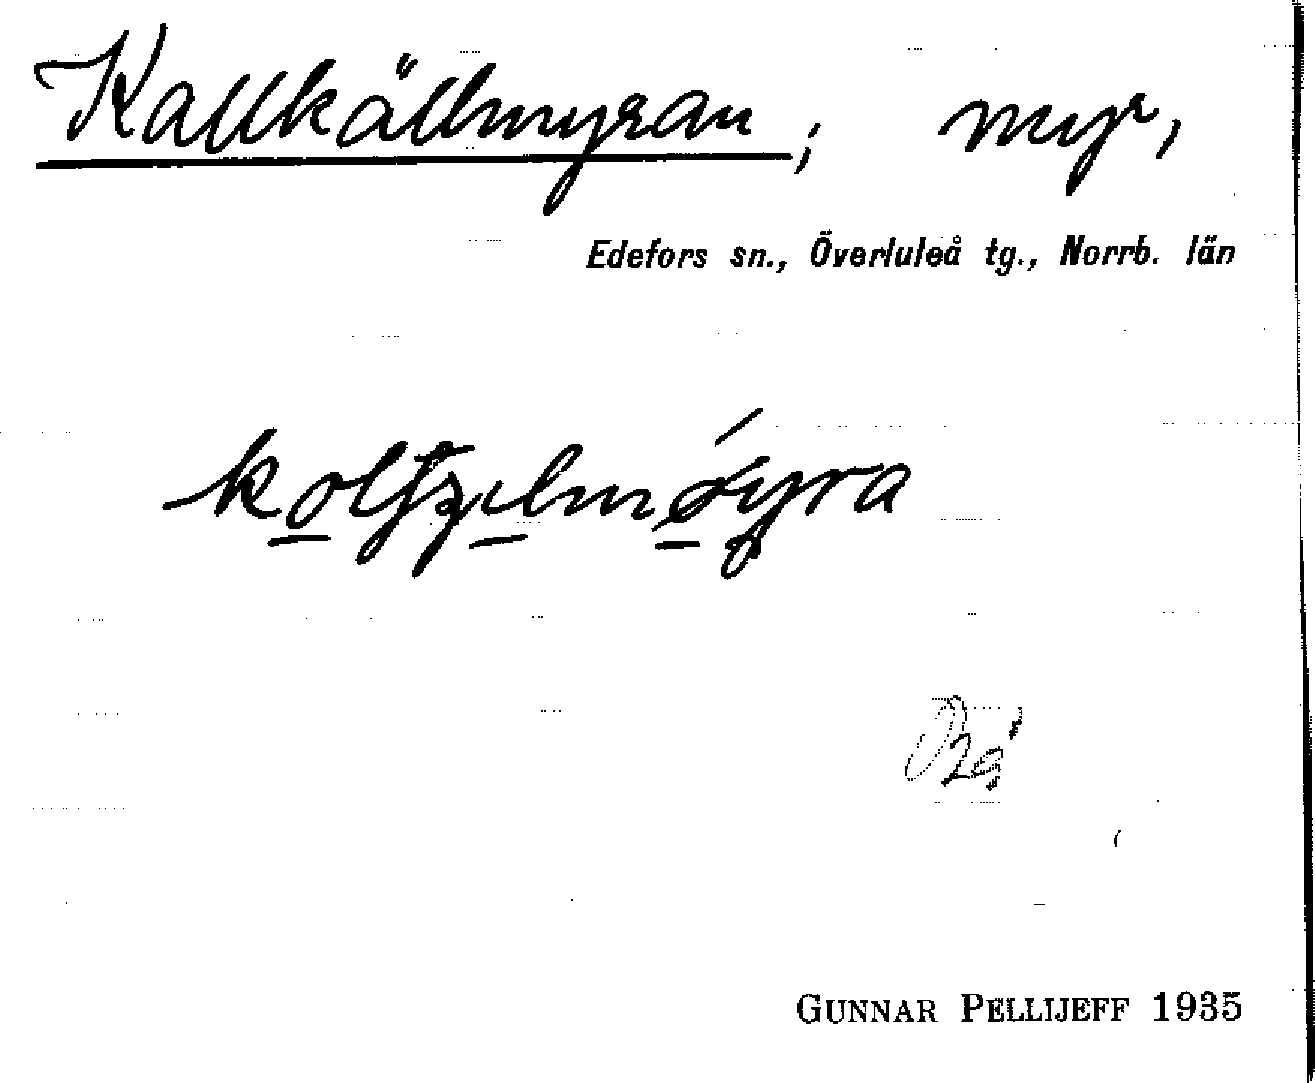 Kallkällmyran; myr,
Edefors sn., Överluleå tg., Norrb. län
GUNNAR PELLIJEFF 1935